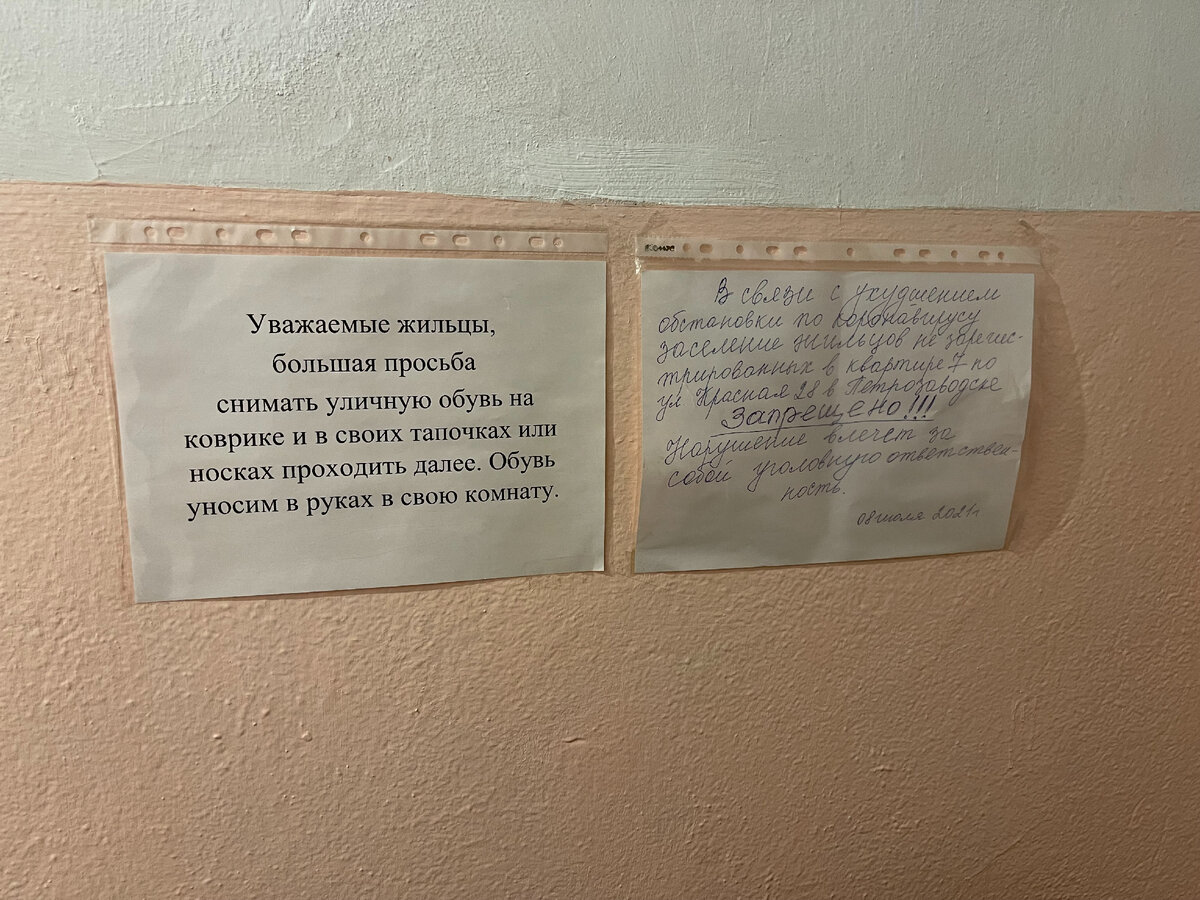 Уважаемые жильцы,
большая просьба
снимать уличную обувь на
коврике и в своих тапочках или
носках проходить далее. Обувь
уносим в руках в свою комнату.
Комус
В связи с ухудшением
обстановки по коронавирусу
заселение жильцов не зарегис-
трированных в квартире 7 по
ул Красная 28 в Петрозаводске
Запрещено!!!
Нарушение влечет за
собой уголовную ответствен-
ность.
08 июля 2021г